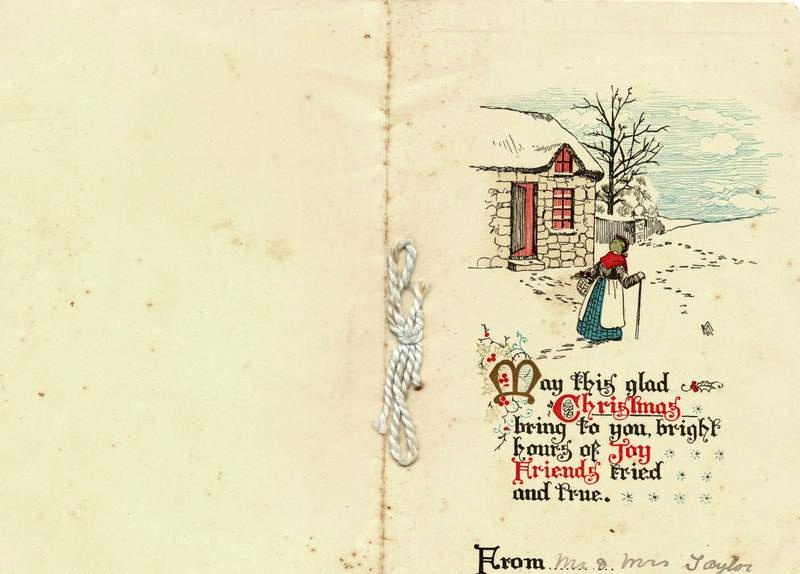 May this glad
Christmas
bring to you, bright
hours of Joy
Friends tried
and true.
From Mr & Mrs Taylor